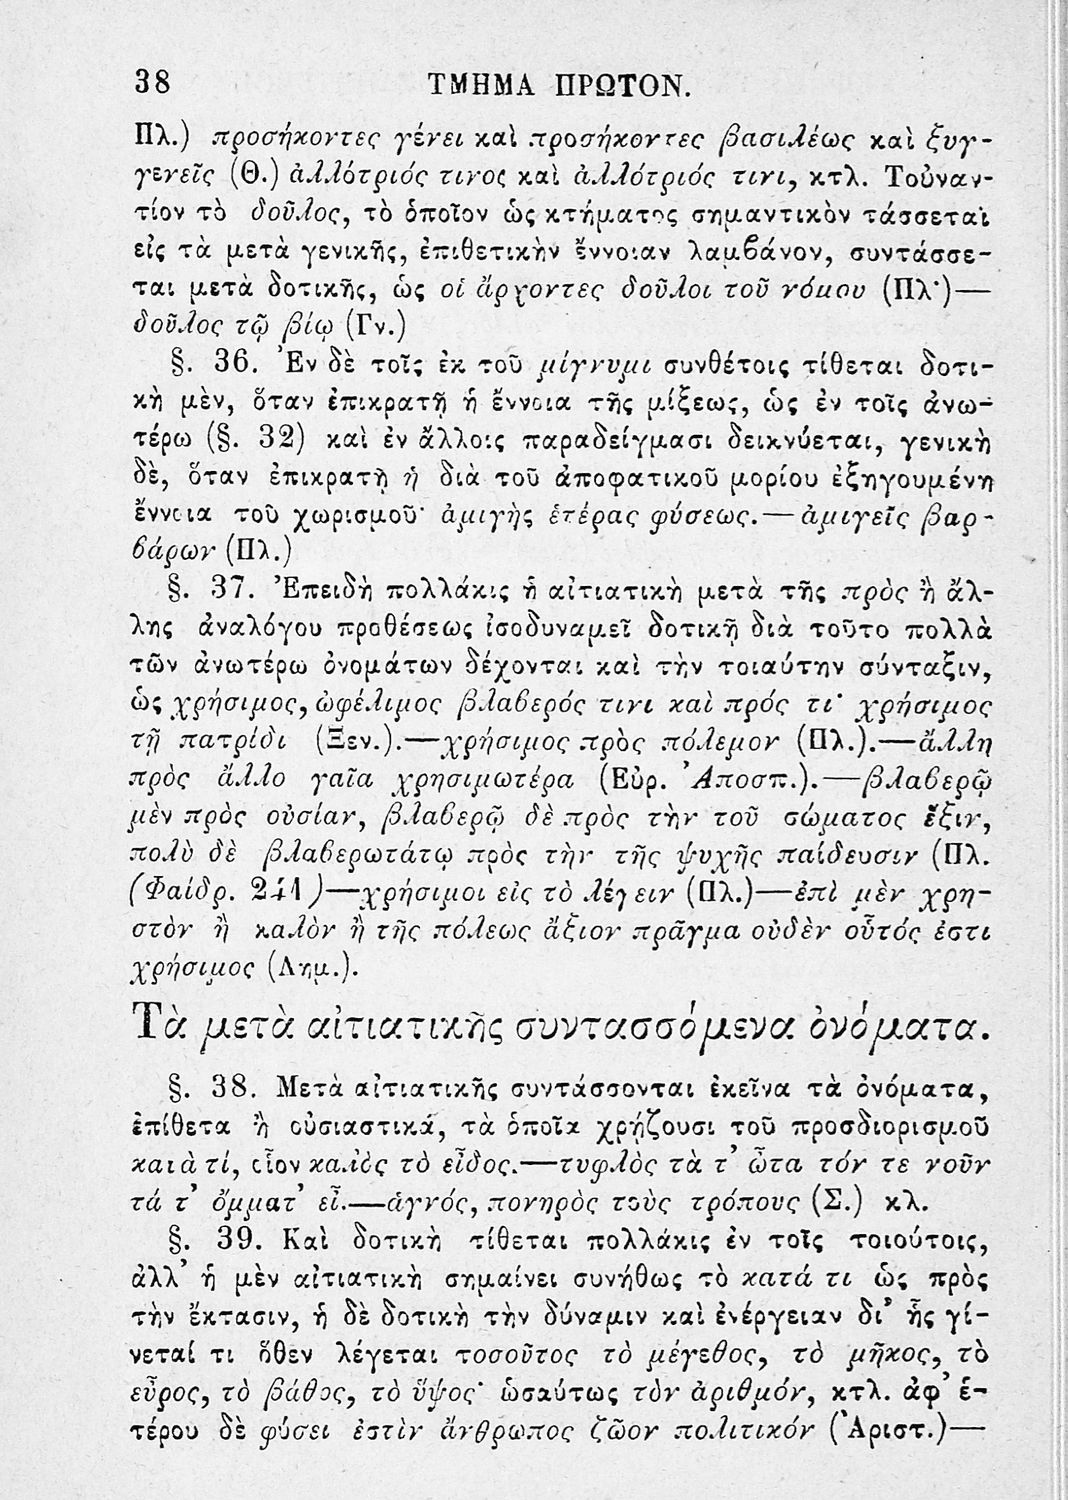 38 ΤΜΗΜΑ ΠΡΩΤΟΝ.
Πλ.) προσήκοντες γένει καὶ προσήκοντες βασιλέως καὶ ξυγ-
γενεῖς (Θ.) ἀλλότριός τινος καὶ ἀλλότριός τινι, κτλ. Τοὐναν-
τίον τὸ δοῦλος, τὸ ὁποῖον ὡς κτήματος σημαντικὸν τάσσεται
εἰς τὰ μετὰ γενικῆς, ἐπιθετικὴν ἔννοιαν λαμβάνον, συντάσσε-
ται μετὰ δοτικῆς, ὡς οἱ ἄρχοντες δοῦλοι τοῦ νόμου (Πλ·)—
δοῦλος τῷ βίῳ (Γν.)
§. 36. Ἐν δὲ τοῖς ἐκ τοῦ μίγνυμι συνθέτοις τίθεται δοτι-
κὴ μὲν, ὅταν ἐπικρατῇ ἡ ἔννοια τῆς μίξεως, ὡς ἐν τοῖς ἀνω-
τέρω (§. 32) καὶ ἐν ἄλλοις παραδείγμασι δεικνύεται, γενικὴ
δὲ, ὅταν ἐπικρατῇ ἡ διὰ τοῦ ἀποφατικοῦ μορίου ἐξηγουμένη
ἔννοια τοῦ χωρισμοῦ· ἀμιγὴς ἑτέρας φύσεως.—ἀμιγεῖς βαρ-
βάρων (Πλ.)
§. 37. Ἐπειδὴ πολλάκις ἡ αἰτιατικὴ μετὰ τῆς πρὸς ἢ ἄλ-
λης ἀναλόγου προθέσεως ἰσοδυναμεῖ δοτικῇ διὰ τοῦτο πολλὰ
τῶν ἀνωτέρω ὀνομάτων δέχονται καὶ τὴν τοιαύτην σύνταξιν,
ὡς χρήσιμος, ὠφέλιμος βλαβερός τινι καὶ πρός τι· χρήσιμος
τῇ πατρίδι (Ξεν.).—χρήσιμος πρὸς πόλεμον (Πλ.).—ἄλλη
πρὸς ἄλλο γαῖα χρησιμωτέρα (Εὐρ. Ἀποσπ.).—βλαβερῷ
μὲν πρὸς οὐσίαν, βλαβερῷ δὲ πρὸς τὴν τοῦ σώματος ἕξιν,
πολὺ δὲ βλαβερωτάτῳ πρὸς τὴν τῆς ψυχῆς παίδευσιν (Πλ.
(Φαίδρ. 241)—χρήσιμοι εἰς τὸ λέγειν (Πλ.)—ἐπὶ μὲν χρη-
στὸν ἢ καλὸν ἢ τῆς πόλεως ἄξιον πρᾶγμα οὐδὲν οὗτός ἐστι
χρήσιμος (Δημ.).
Τὰ μετὰ αἰτιατικῆς συντασσόμενα ὀνόματα.
§. 38. Μετὰ αἰτιατικῆς συντάσσονται ἐκεῖνα τὰ ὀνόματα,
ἐπίθετα ἢ οὐσιαστικά, τὰ ὁποῖα χρῄζουσι τοῦ προσδιορισμοῦ
κατὰ τί, οἷον καλὸς τὸ εἶδος.—τυφλὸς τὰ τ' ὦτα τόν τε νοῦν
τά τ' ὄμματ' εἶ.—ἁγνός, πονηρὸς τοὺς τρόπους (Σ.) κλ.
§. 39. Καὶ δοτικὴ τίθεται πολλάκις ἐν τοῖς τοιούτοις,
ἀλλ' ἡ μὲν αἰτιατικὴ σημαίνει συνήθως τὸ κατά τι ὡς πρὸς
τὴν ἔκτασιν, ἡ δὲ δοτικὴ τὴν δύναμιν καὶ ἐνέργειαν δι' ἧς γί-
νεταί τι ὅθεν λέγεται τοσοῦτος τὸ μέγεθος, τὸ μῆκος, τὸ
εὖρος, τὸ βάθος, τὸ ὕψος· ὡσαύτως τὸν ἀριθμόν, κτλ. ἀφ' ἑ-
τέρου δὲ φύσει ἐστὶν ἄνθρωπος ζῶον πολιτικόν (Ἀριστ.)—